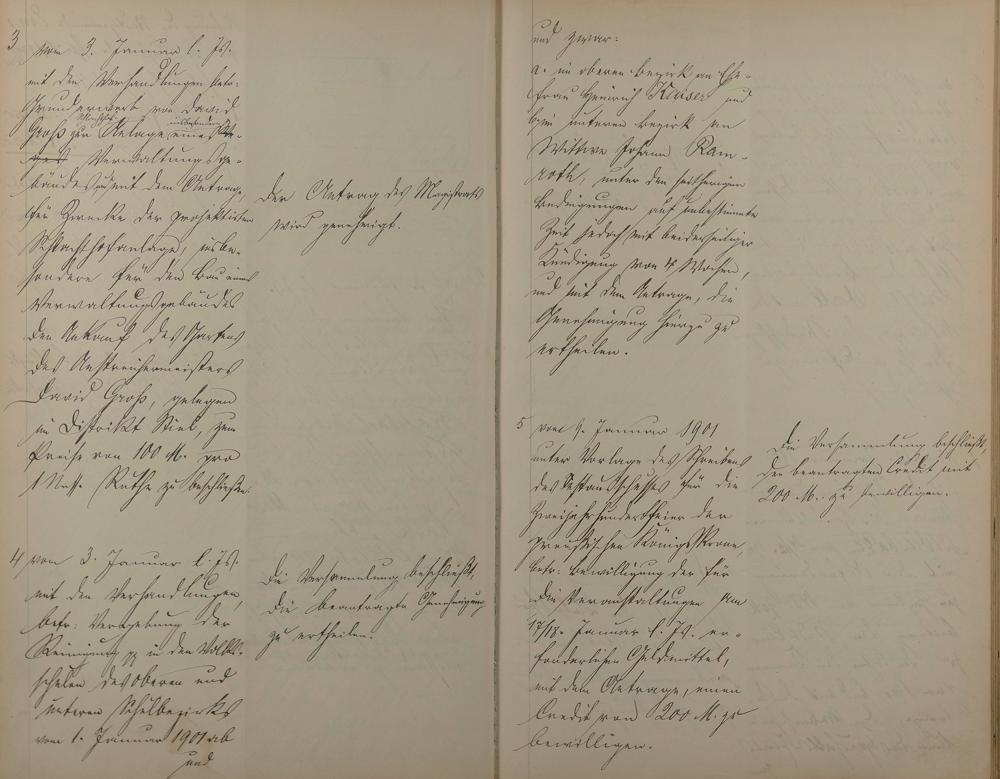 3
vom 3. Januar l. Js.
mit den Verhandlungen betr:
Grunderwerb von David
Groß zur Anlage eines
Verwaltungsge-
bäudes, mit dem Antrage,
für Zwecke der projektirten
Schlachthofanlage, insbe-
sondere für den Bau eines
Verwaltungsgebäudes
den Ankauf des Gartens
des Anstreichermeisters
David Groß, gelegen
im Distrikt Stiel, zum
Preise von 100 M. pro
1 Nass. Ruthe zu beschließen.
Der Antrag des Magistrats
wird genehmigt.
4
vom 3. Januar l. Js.
mit den Verhandlungen,
betr: Vergebung der
Reinigung pp in den Volks-
schulen des oberen und
unteren Schulbezirks
vom 1. Januar 1901 ab
und
Die Versammlung beschließt,
die beantragte Genehmigung
zu ertheilen.
und zwar:
a. im oberen Bezirk an Ehe-
frau Heinrich Kaiser und
b. im unteren Bezirk an
Wittwe Johann Ram-
roth, unter den seitherigen
Bedingungen auf unbestimmte
Zeit jedoch mit beiderseitiger
Kündigung von 4 Wochen,
und mit dem Antrage, die
Genehmigung hierzu zu
ertheilen.
5
vom 9. Januar 1901
unter Vorlage des Schreibens
des Festausschusses für die
Zweijahrhundertfeier der
Preußischen Königskrone
betr: Bewilligung der für
die Veranstaltungen am
17/18. Januar l. Js. er-
forderlichen Geldmittel,
mit dem Antrage, einen
Credit von 200 M. zu
bewilligen.
Die Versammlung beschließt,
den beantragten Credit mit
200 M. zu bewilligen.